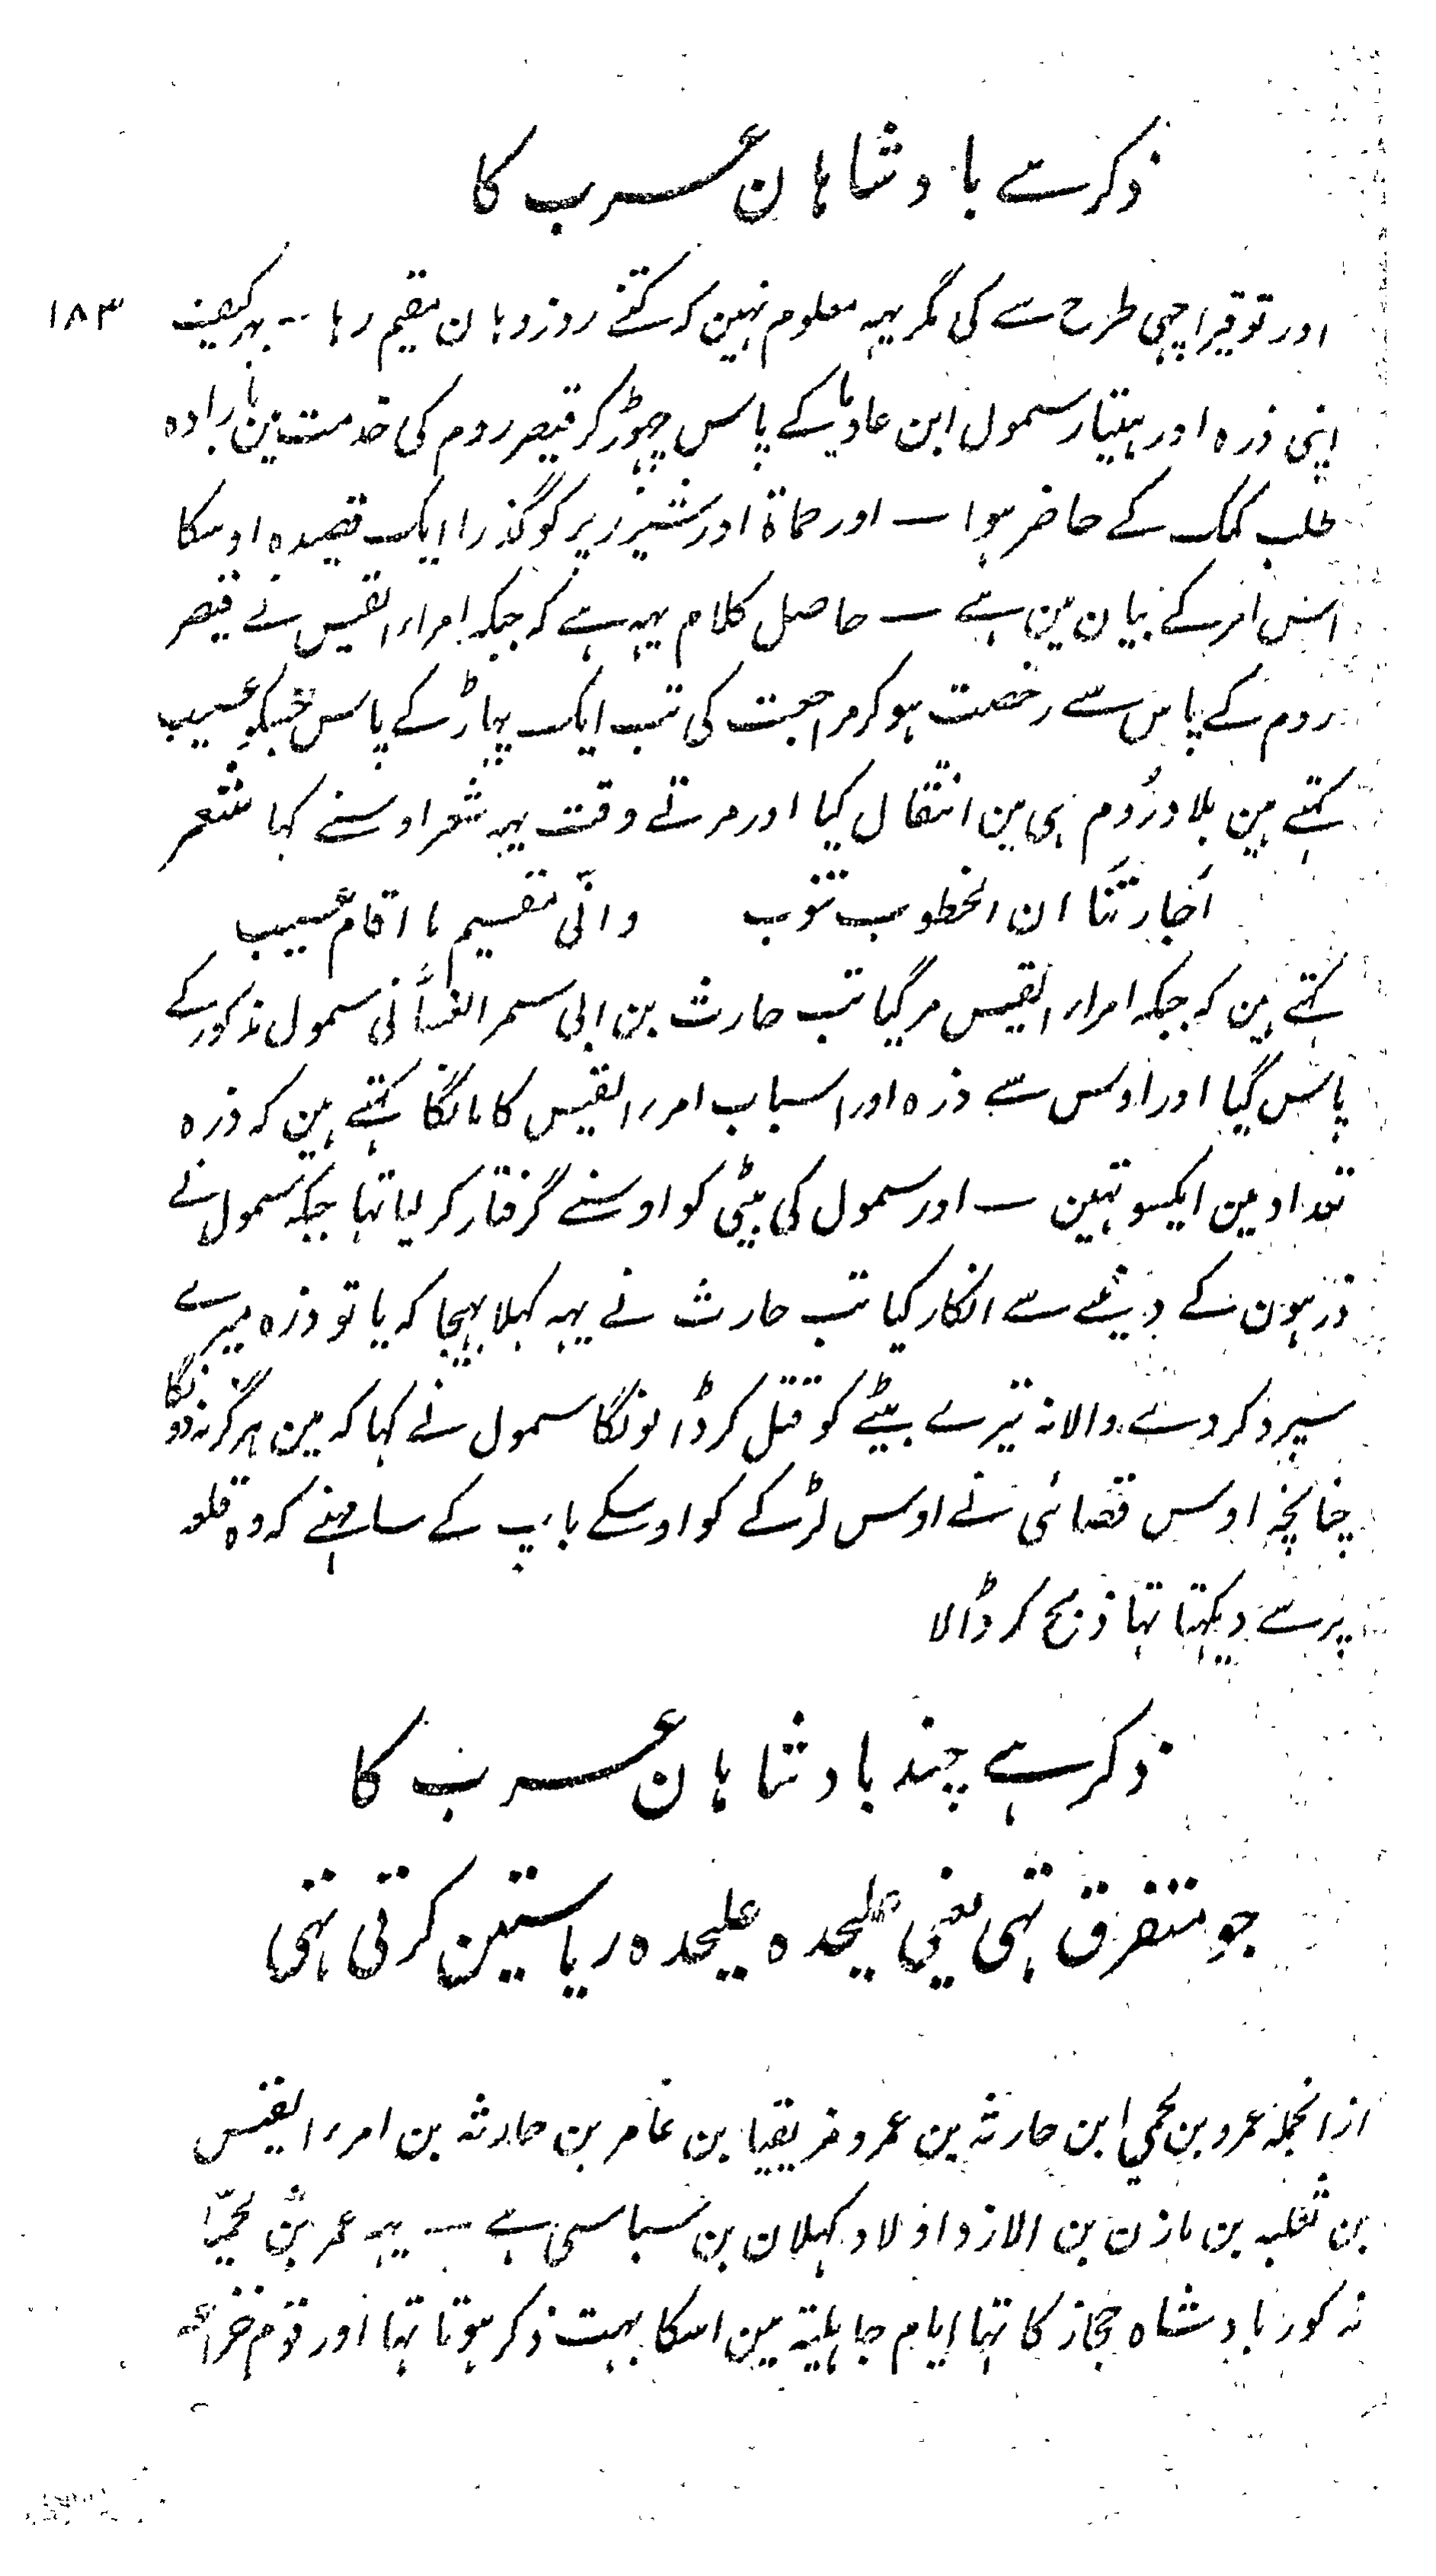 ذکر ہے بادشاہان عرب کا
۱۸۳
اور توقیر اچھی طرح سے کی مگر یہہ معلوم نہین کہ کتنے روز وہان مقیم رہا ــ بہر کیف
اپنی ذرہ اور ہتیار سمول ابن عادیا کے پاس چھوڑ کر قیصر روم کی خدمت مین بارادہ
طلب کمک کے حاضر ہوا ــ اور حماة اور شیزر پر کو گذرا ایک قصیدہ اوسکا
اس امر کے بیان مین ہے ــ حاصل کلام یہہ ہے کہ جبکہ امراء القیس نے قیصر
روم کے پاس سے رخصت ہو کر مراجعت کی تب ایک پہاڑ کے پاس جسکو عسیب
کہتے ہین بلاد روم ہی مین انتقال کیا اور مرتے وقت یہہ شعر اوسنے کہا شعر
اَجارتَنَا ان الخطوب تنوب وانّی مقیم ما اقام عسیب
کہتے ہین کہ جبکہ امراء القیس مر گیا تب حارث بن ابی سمر الغسّانی سمول مذکور کے
پاس گیا اور اوس سے ذرہ اور اسباب امرء القیس کا مانگا کہتے ہین کہ ذرہ
تعداد مین ایکسو تہین ــ اور سمول کی بیٹی کو اوسنے گرفتار کر لیا تہا جبکہ سمول نے
ذرہون کے دینے سے انکار کیا تب حارث نے یہہ کہلا بہیجا کہ یا تو ذرہ میرے
سپرد کر دے والا نہ تیرے بیٹے کو قتل کر ڈالونگا سمول نے کہا کہ مین ہرگز نہ دونگا
چنانچہ اوس قصائی نے اوس لڑکے کو اوسکے باپ کے سامہنے کہ وہ قلعہ
پر سے دیکہتا تہا ذبح کر ڈالا
ذکر ہے چند بادشاہان عرب کا
جو متفرق تہی یعنی علیحدہ علیحدہ ریاستین کرتی تہی
ازانجملہ عمرو بن لحي ابن حارثہ بن عمرو مزیقیا بن عامر بن حارثہ بن امرء القیس
بن ثعلبہ بن مازن بن الازد اولاد کہلان بن سبا سی ہے ــ یہہ عمر بن لحیّ
مذکور بادشاہ حجاز کا تہا ایام جاہلیۃ مین اسکا بہت ذکر ہوتا تہا اور قوم خزاعہ